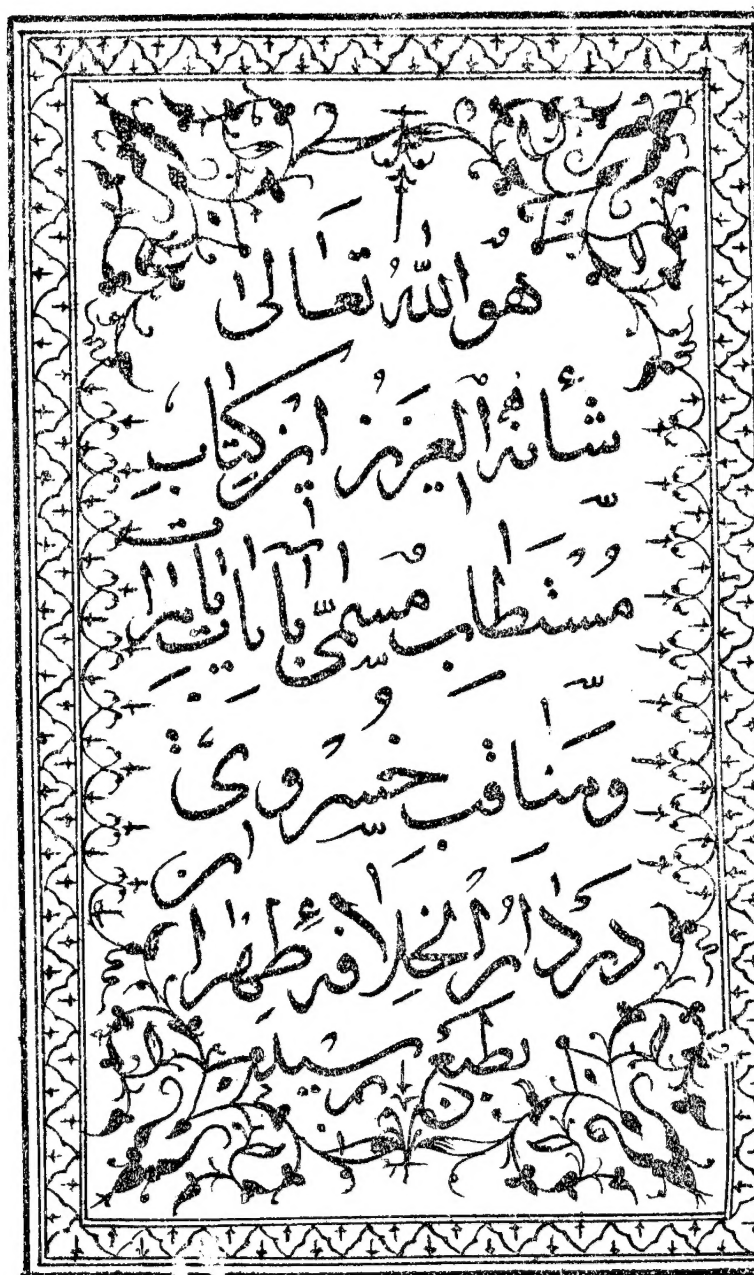 هُوَاللّٰهُ تَعَالیٰ
شَأنُهُ العَزیز این کِتابِ
مُستَطاب مُسَمّیٰ بآیاتِ
وَ مَناقبِ خُسرَویٰ
دَر دَارُ الخِلافهٔ طهران
بطبع رسید